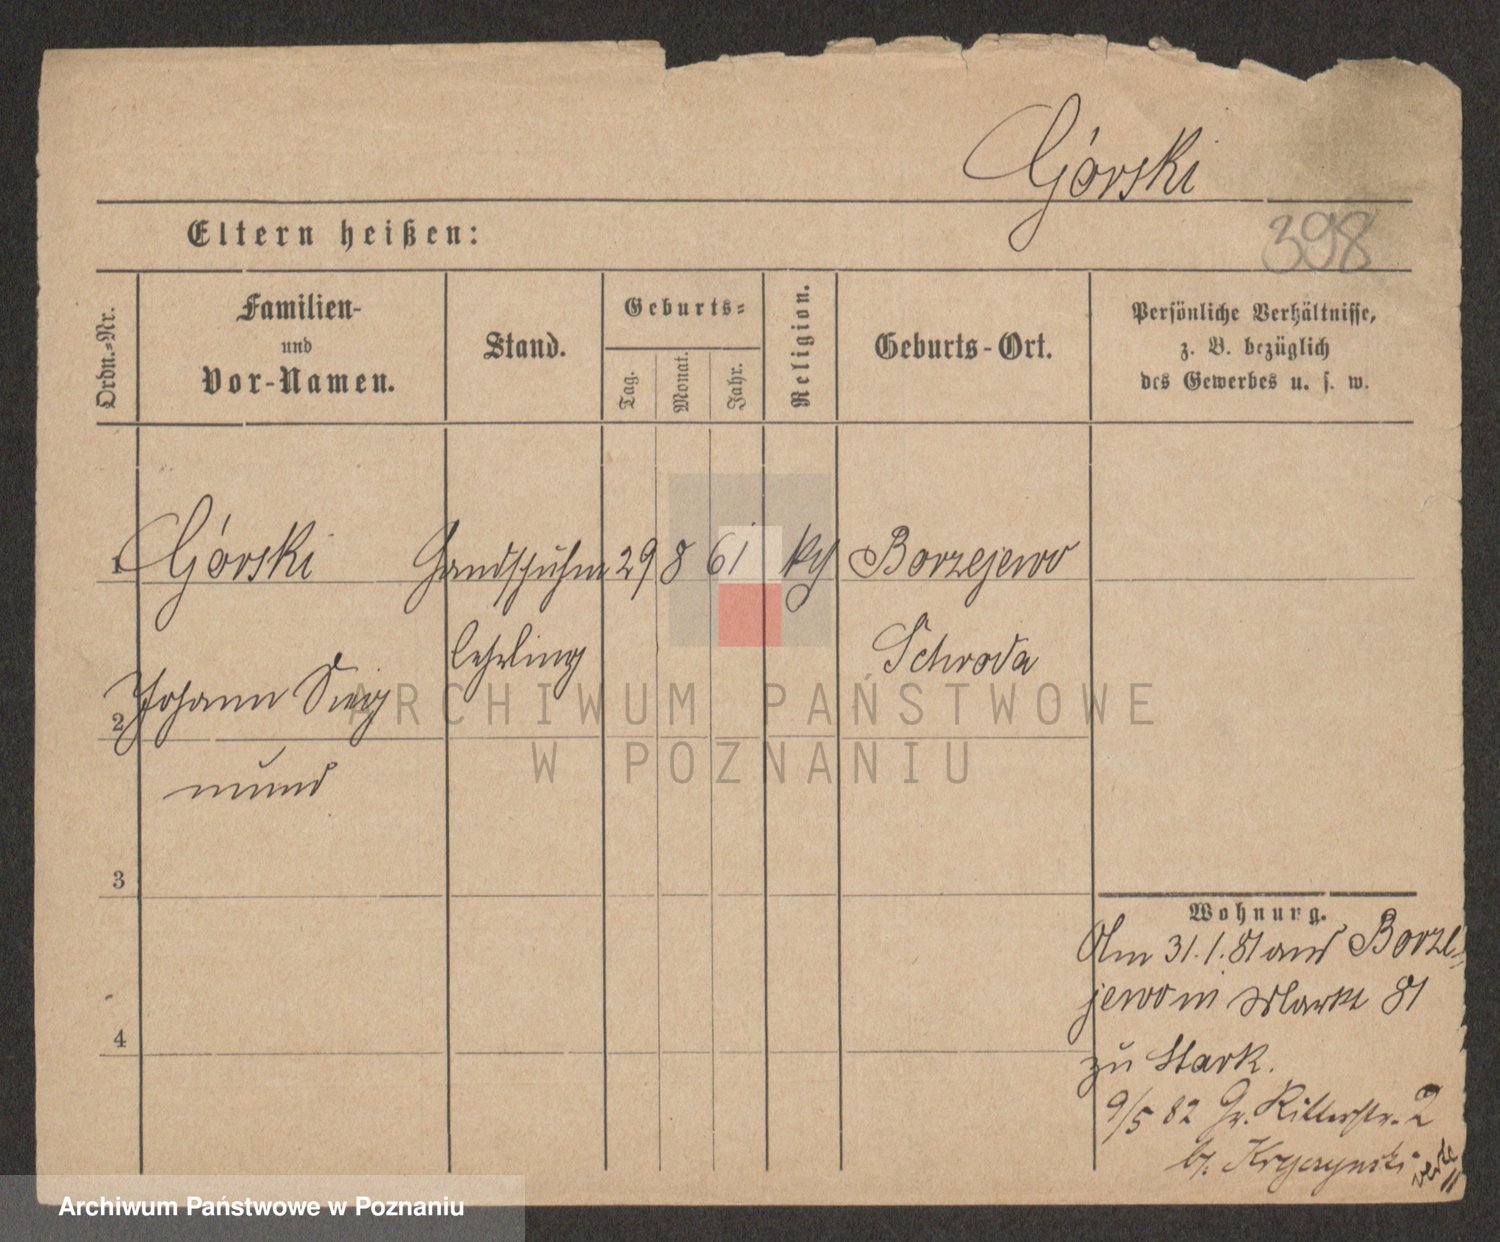 Górski
398
Eltern heißen:
Ordn.-Nr.
Familien-
und
Vor-Namen.
Stand.
Geburts-
Tag.
Monat.
Jahr.
Religion.
Geburts-Ort.
Persönliche Verhältnisse,
z. B. bezüglich
des Gewerbes u. s. w.
1 Górski Handschuhm 29 8 61 Borzejewo
lehrling Schroda
2 Johann Sieg
mund
ARCHIWUM PAŃSTWOWE
W POZNANIU
3
4
Wohnung.
Am 31.1.81 aus Borze-
jewo in Markt 81
zu Stark.
9/5 82 Gr. Ritterstr. 2
b.
Archiwum Państwowe w Poznaniu